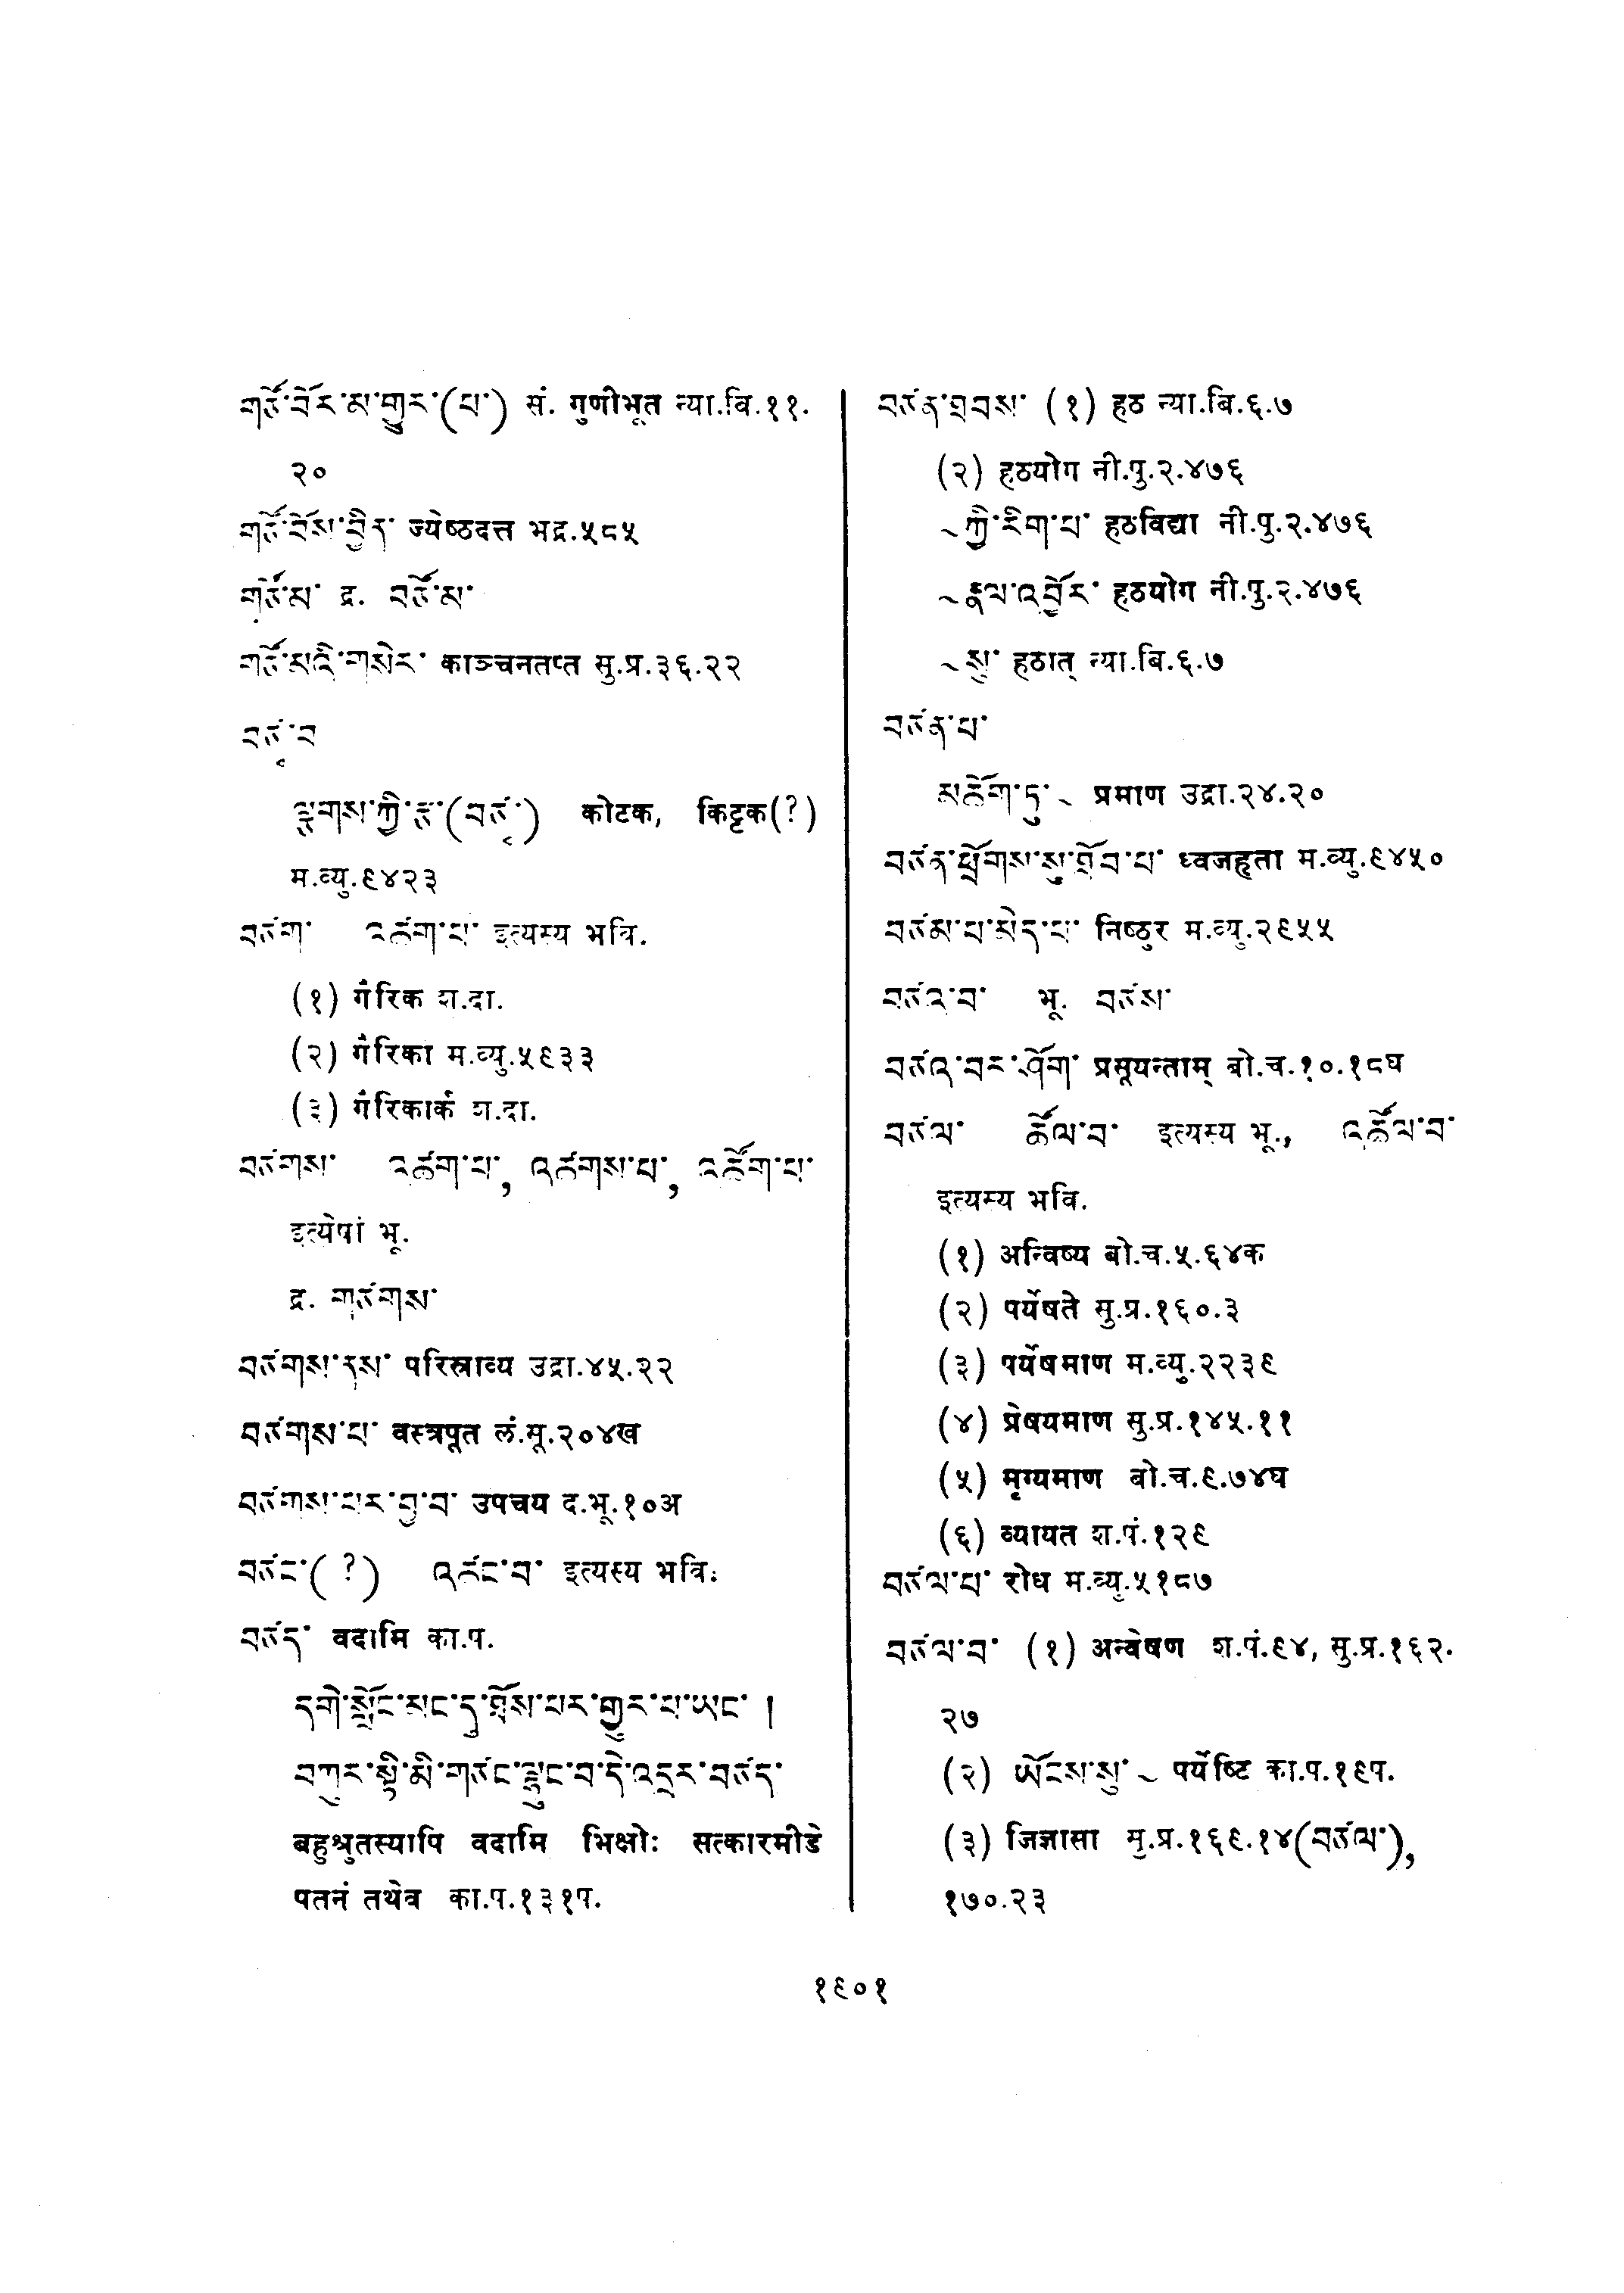 གཙོ་བོར་མ་གྱུར་(པ་) सं. गुणीभूत न्या.बि.११.
२०
གཙོ་བོས་བྱིན་ ज्येष्ठदत्त भद्र.५८५
གཙོ་མ་ द्र. བཙོ་མ་
གཙོ་མའི་གསེར་ काञ्चनतप्त सु.प्र.३६.२२
བཙུ་བ
ལྕགས་ཀྱི་རྩ་(བཙུ་) कोटक, किट्टक(?)
म.व्यु.९४२३
བཙག་ འཚག་པ་ इत्यस्य भवि.
(१) गैरिक श.दा.
(२) गैरिका म.व्यु.५९३३
(३) गैरिकार्क श.दा.
བཙགས་ འཚག་པ་, འཚགས་པ་, འཚོག་པ་
इत्येषां भू.
द्र. གཙགས་
བཙགས་ནས་ परिस्राव्य उद्रा.४५.२२
བཙགས་པ་ वस्त्रपूत लं.सू.२०४ख
བཙགས་པར་བྱ་བ་ उपचय द.भू.१०अ
བཙང་(?) འཚང་བ་ इत्यस्य भवि.
བཙད་ वदामि का.प.
དགེ་སློང་མང་དུ་ཐོས་པར་གྱུར་པ་ཡང་ །
བཀུར་སྟི་མི་གཙང་ལྟུང་བ་དེ་འདྲར་བཙད་
बहुश्रुतस्यापि वदामि भिक्षोः सत्कारमीडे
पतनं तथेव का.प.१३१प.
བཙན་ཐབས་ (१) हठ न्या.बि.६.७
(२) हठयोग नी.पु.२.४७६
~ཀྱི་རིག་པ་ हठविद्या नी.पु.२.४७६
~རྣལ་འབྱོར་ हठयोग नी.पु.२.४७६
~སུ་ हठात् न्या.बि.६.७
བཙན་པ་
མཆོག་ཏུ་~ प्रमाण उद्रा.२४.२०
བཙན་ཕྲོགས་སུ་ཐོབ་པ་ ध्वजहृता म.व्यु.९४५०
བཙམ་པ་མེད་པ་ निष्ठुर म.व्यु.२९५५
བཙའ་བ་ भू. བཙས་
བཙའ་བར་ཤོག་ प्रसूयन्ताम् बो.च.१०.१८घ
བཙལ་ ཚོལ་བ་ इत्यस्य भू., འཚོལ་བ་
इत्यस्य भवि.
(१) अन्विष्य बो.च.५.६४क
(२) पर्येषते सु.प्र.१६०.३
(३) पर्येषमाण म.व्यु.२२३९
(४) प्रेषयमाण सु.प्र.१४५.११
(५) मृग्यमाण बो.च.९.७४घ
(६) व्यायत श.पं.१२९
བཙལ་པ་ रोध म.व्यु.५१८७
བཙལ་བ་ (१) अन्वेषण श.पं.९४, सु.प्र.१६२.
२७
(२) ཡོངས་སུ་~ पर्येष्टि का.प.१९प.
(३) जिज्ञासा सु.प्र.१६९.१४(བཙལ་),
१७०.२३
१९०१